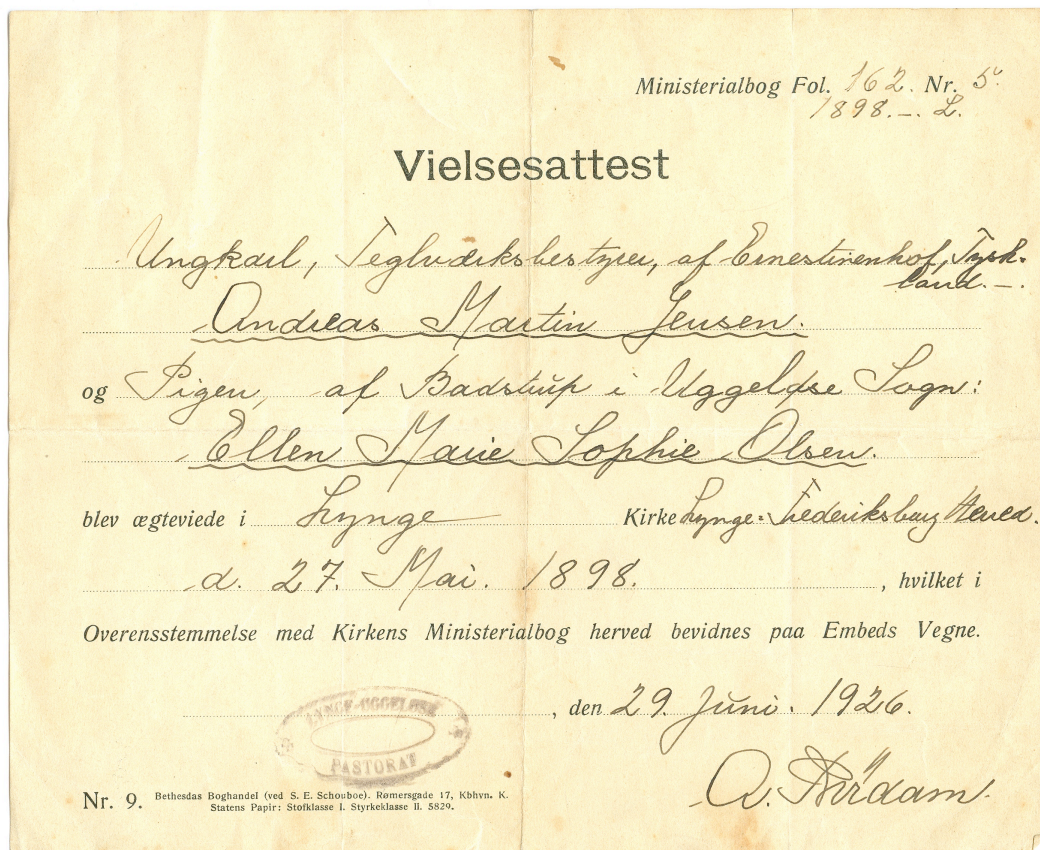 Ministerialbog Fol. 162. Nr. 5.
1898.-. L.
Vielsesattest
Ungkarl, Teglværksbestyrer, af Ernestinenhof, Tysk-
land.-.
Andreas Martin Jensen.
og Pigen, af Badstrup i Uggeløse Sogn:
Ellen Marie Sophie Olsen.
blev ægteviede i Lynge Kirke Lynge-Frederiksborg Herred.
d. 27. Mai. 1898. , hvilket i
Overensstemmelse med Kirkens Ministerialbog herved bevidnes paa Embeds Vegne.
, den 29. Juni. 1926.
LYNGE-UGGELØSE
PASTORAT
A.
Nr. 9. Bethesdas Boghandel (ved S. E. Schouboe). Rømersgade 17, Kbhvn. K.
Statens Papir: Stofklasse I. Styrkeklasse II. 5829.